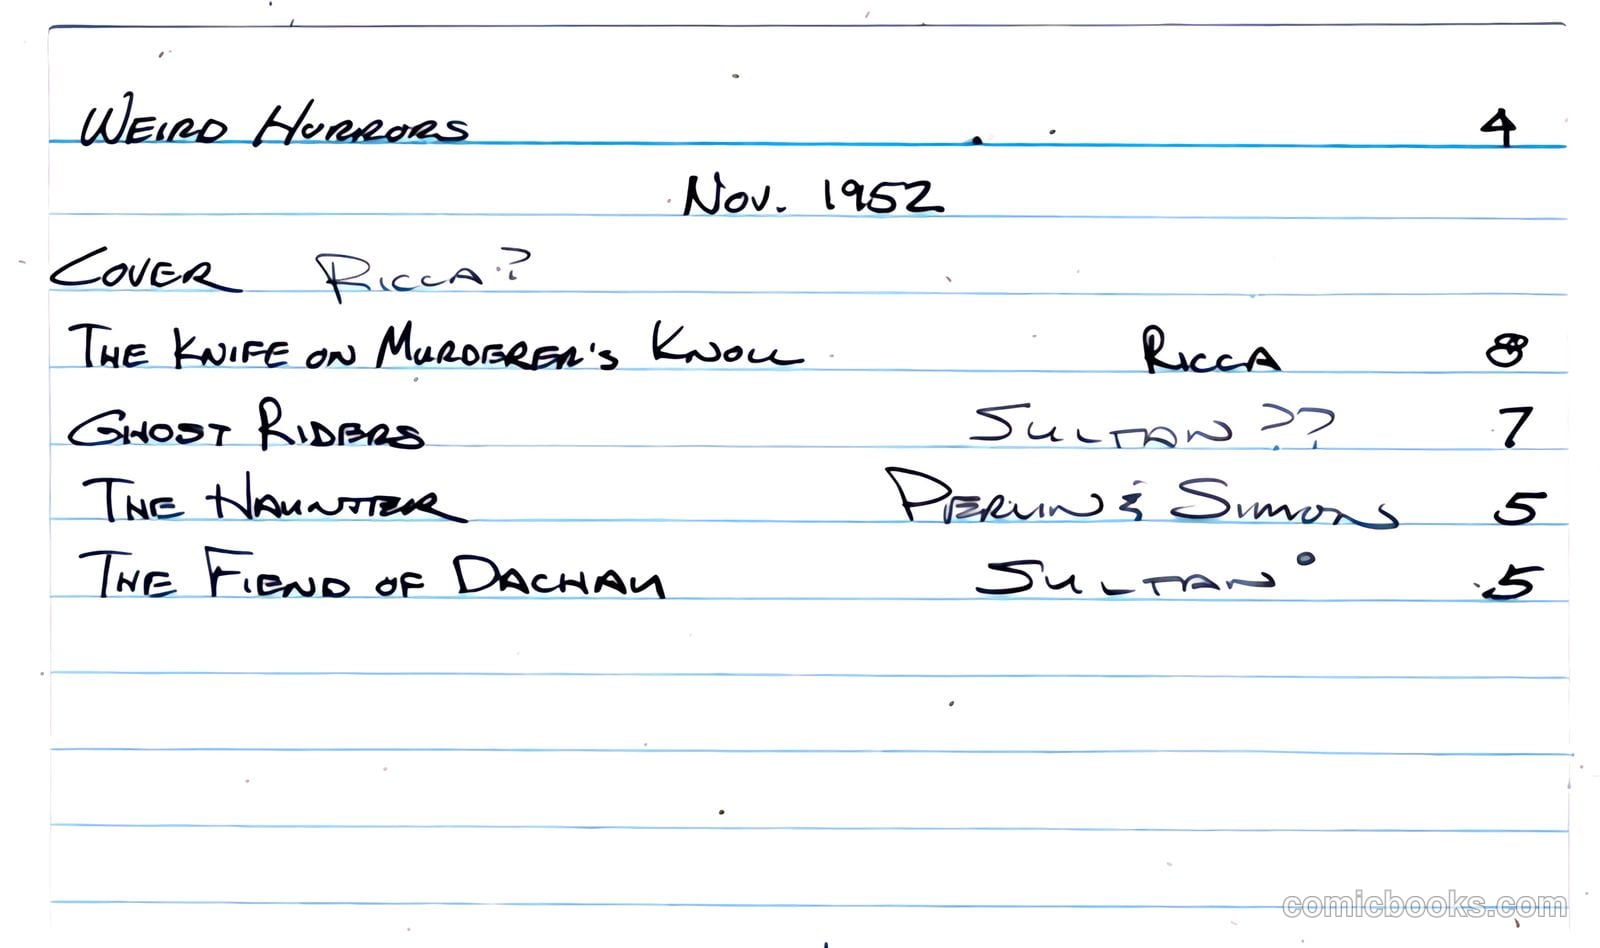 WEIRD HORRORS 4
NOV. 1952
COVER RICCA?
THE KNIFE ON MURDERER'S KNOLL RICCA 8
GHOST RIDERS SULTAN ?? 7
THE HAUNTER PERLIN & SIMONS 5
THE FIEND OF DACHAU SULTAN 5
comicbooks.com